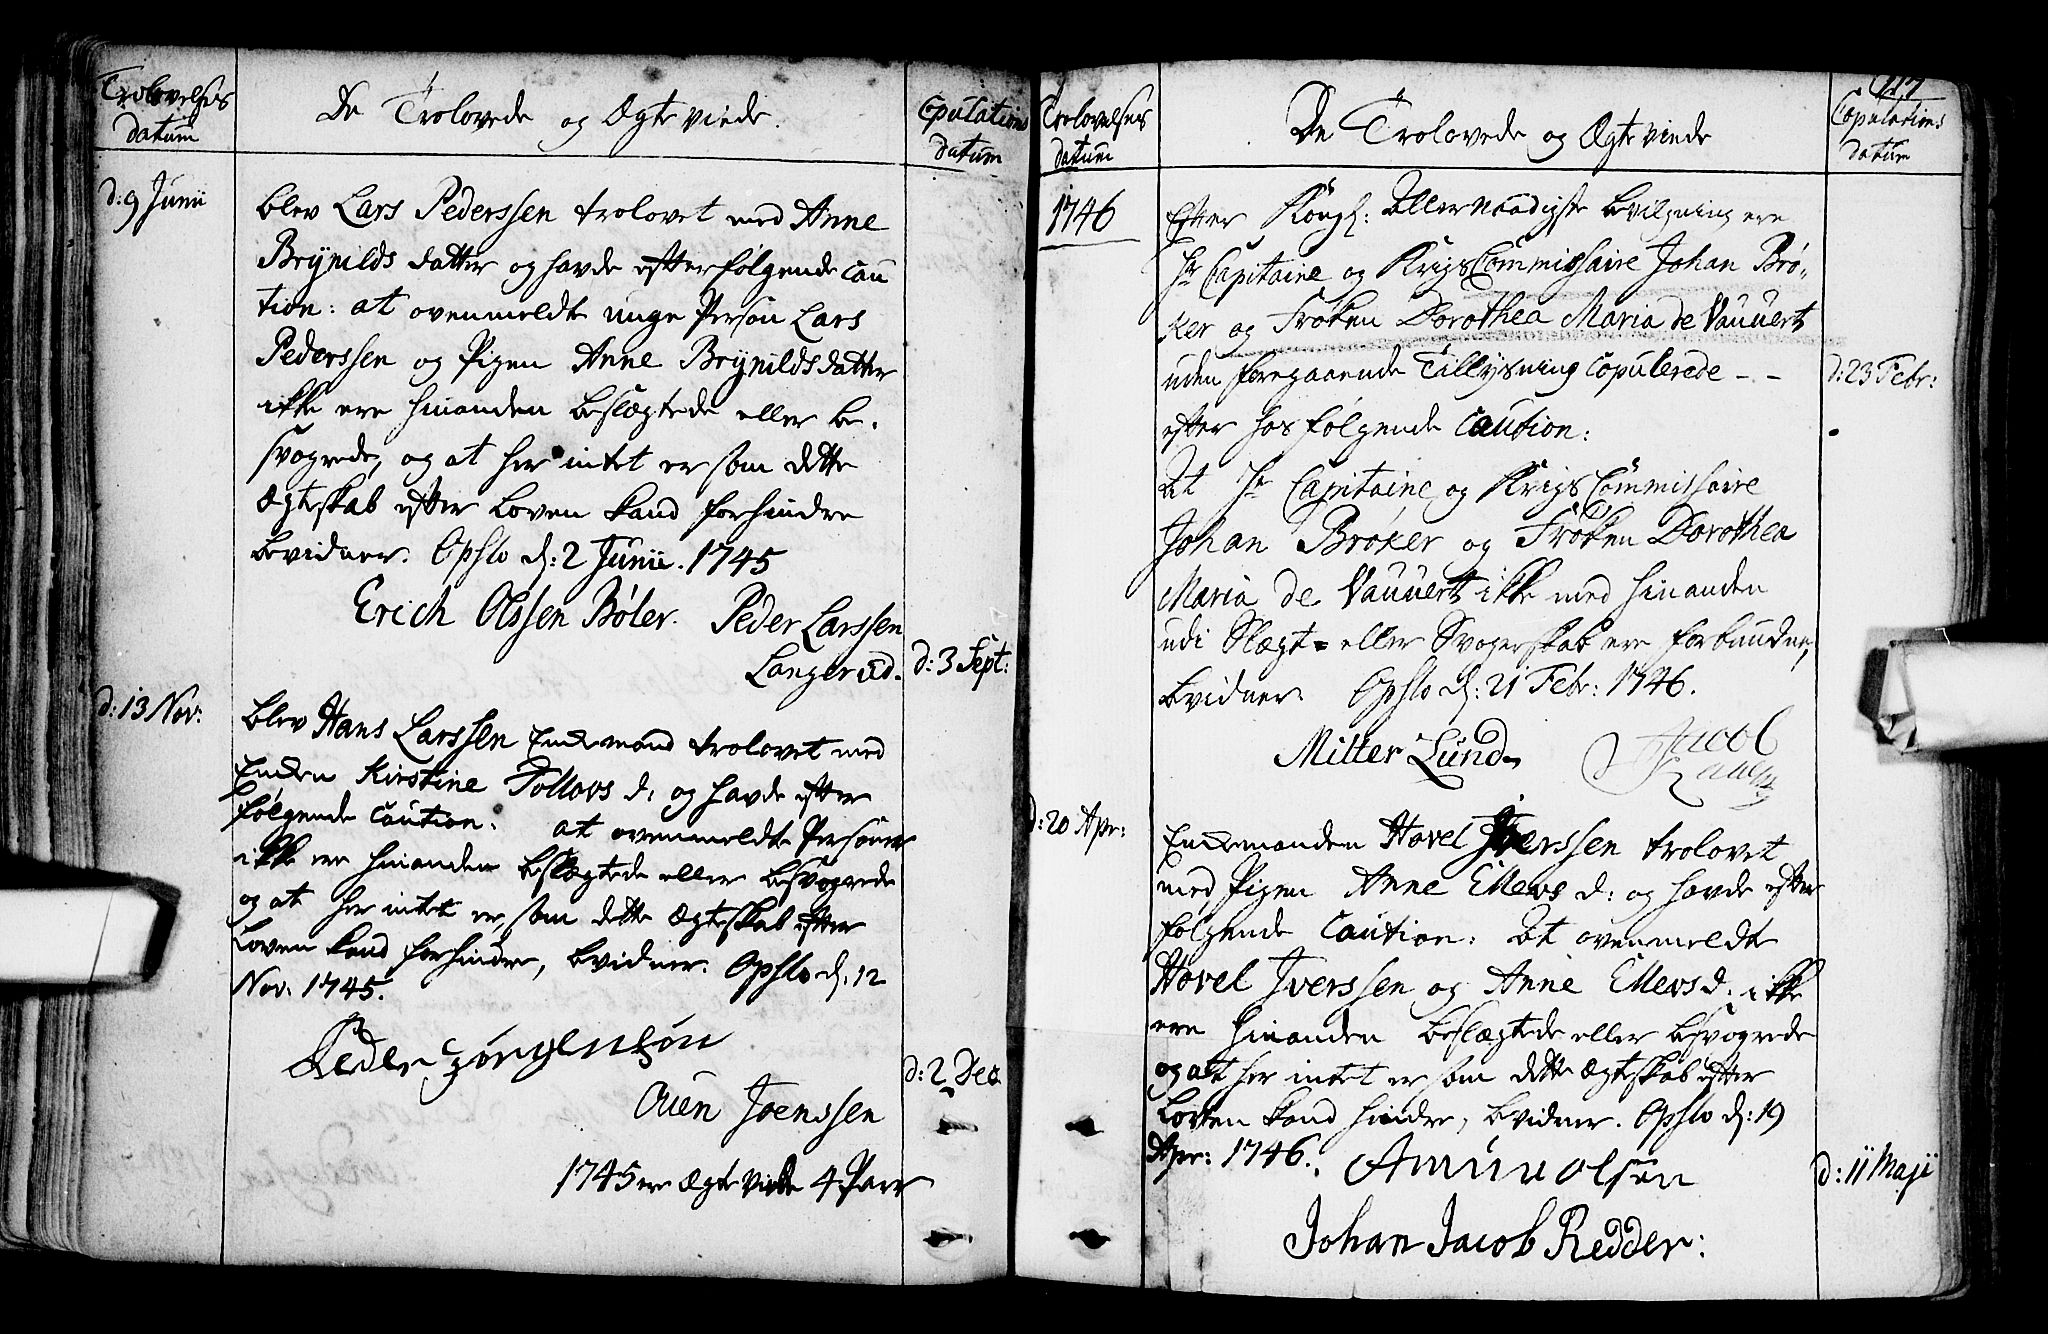 Trolovelsis
datum
De Trolovede og Ægte viede.
Copulations
datum
d: 9 Junii
blev Lars Pederssen trolovet med Anne
Brynilds datter og havde efterfølgende Cau
tion: at ovenmeldte unge Person Lars
Pederssen og Pigen Anne Brynildsdatter
ikke ere hinanden beslægtede eller be-
svogrede, og at her intet er som dette
Ægteskab efter Loven kand forhindre
bevidner. Opslo d: 2 Junii. 1745
Erich Olssen Bøler. Peder Larssen
Langerud.
d: 3 Sept:
d: 13 Nov:
blev Hans Larssen Enckemand trolovet med
Encken Kirstine Tollovs d: og havde efter
følgende Caution: at ovenmeldte Persouer
ikke ere hinanden beslægtede eller besvogrede
og at her intet er, som dette Ægteskab efter
Loven kand forhindre, bevidner. Opslo d: 12
Nov: 1745.
Peder Jørgensøn
Auen Joenssen
d: 2 Dec
1745 ere Ægte viede 4 Par
117
Trolovelses
datum
De Trolovede og Ægte viede
Copulations
datum
1746
Efter Kongl: Allernaadigste bevilgning ere
Hr Capitaine og KrigsCommissaire Johan Brø-
ker og Frøken Dorothea Maria de Vauuert
uden foregaaende Tillysning Copulerede - -
d: 23 Febr:
efter hosfølgende Caution:
At Hr Capitaine og Krigs Commissaire
Johan Brøker og Frøken Dorothea
Maria de Vauuert ikke med hinanden
udi Slægt- eller Svogerskab ere forbundne,
bevidner. Opslo d: 21 Febr: 1746.
Milter Lund. Jacob
d: 20 Apr:
Enckemanden Hovel Iverssen trolovet
med Pigen Anne Ellevs d: og havde efter
følgende Caution: At ovenmeldte
Hovel Iverssen og Anne Ellevsd: ikke
ere hinanden beslægtede eller besvogrede
og at her intet er som dette Ægteskab efter
Loven kand hindre, bevidner. Opslo d: 19
Apr: 1746. Amun olsen
d: 11 Maji
Johan Jacob Redder: